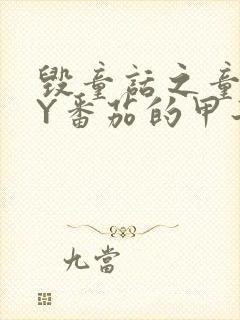 毁童话之童
Y番茄的甲
九當